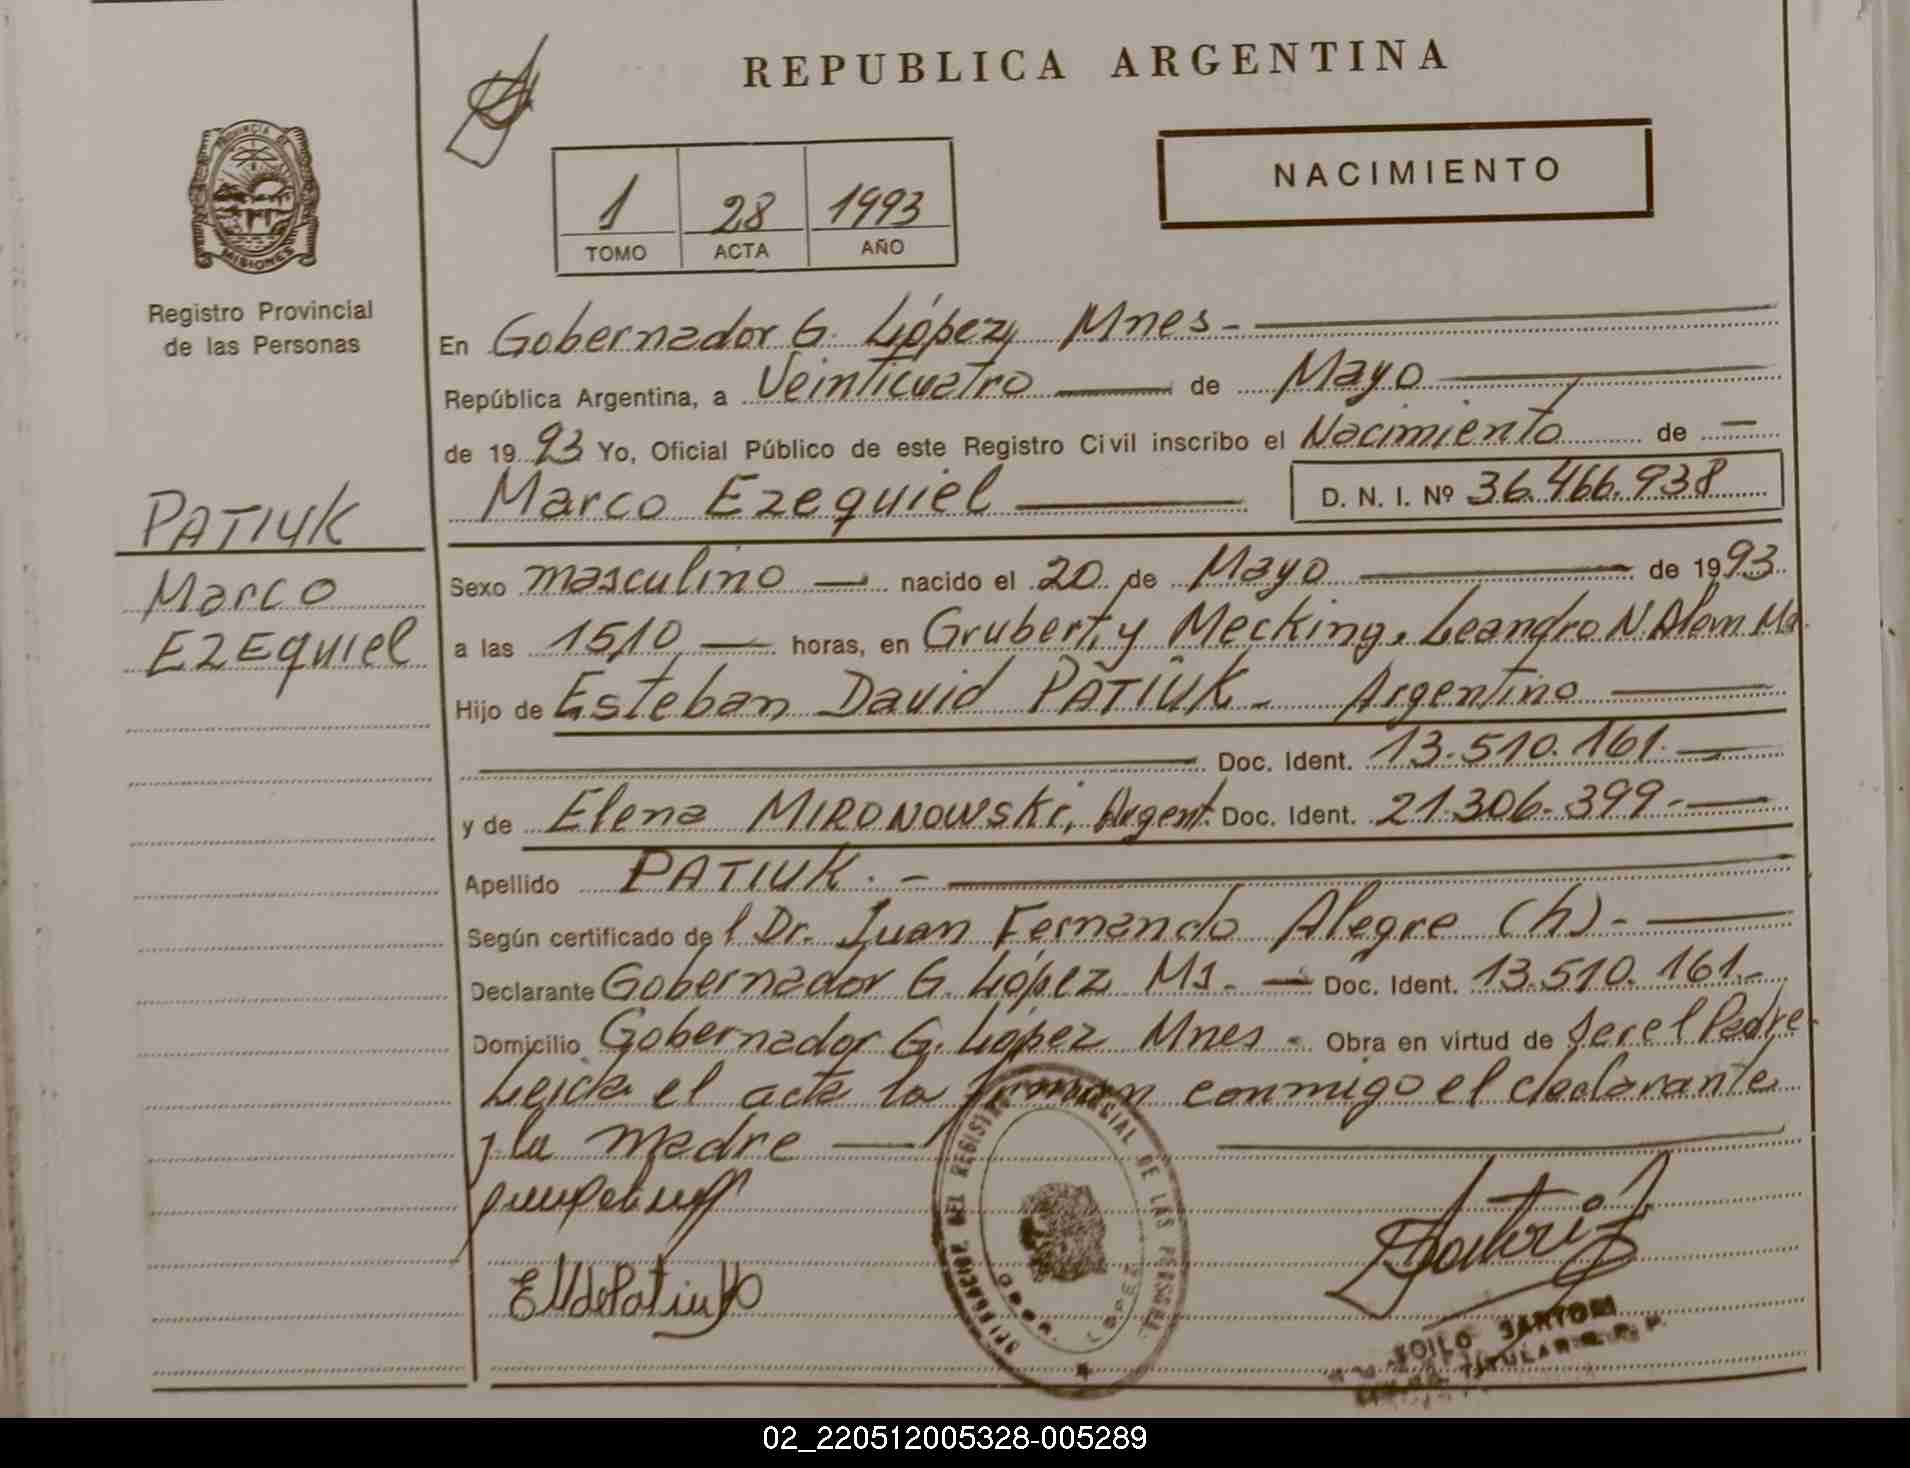 REPUBLICA ARGENTINA
NACIMIENTO
1 28 1993
TOMO ACTA AÑO
PROVINCIA DE
MISIONES
Registro Provincial
de las Personas
PATIUK
Marco
EZEquiel
En Gobernador G. López, Mnes -
República Argentina, a Veinticuatro de Mayo
de 1993 Yo, Oficial Público de este Registro Civil inscribo el Nacimiento de —
Marco Ezequiel D. N. I. Nº 36.466.938
Sexo masculino — nacido el 20 de Mayo de 1993
a las 15,10 — horas, en Grubert y Mecking, Leandro N Alem Ms.
Hijo de Esteban David PATIUK - Argentino
Doc. Ident. 13.510.161.
y de Elena MIRONOWSKi, Argent. Doc. Ident. 21.306.399.-
Apellido PATIUK. -
Según certificado del Dr. Juan Fernando Alegre (h) -
Declarante Gobernador G. López Ms. — Doc. Ident. 13.510.161.-
Domicilio Gobernador G. López Mnes - Obra en virtud de Ser el Padre
Leida el acta la firman conmigo el declarante
y la madre
EMdePatiuk
DELEGACION DEL REGISTRO PROVINCIAL DE LAS PERSONAS
GDOR. LOPEZ
ZOILO SARTORI
TITULAR R. P. P.
02_220512005328-005289